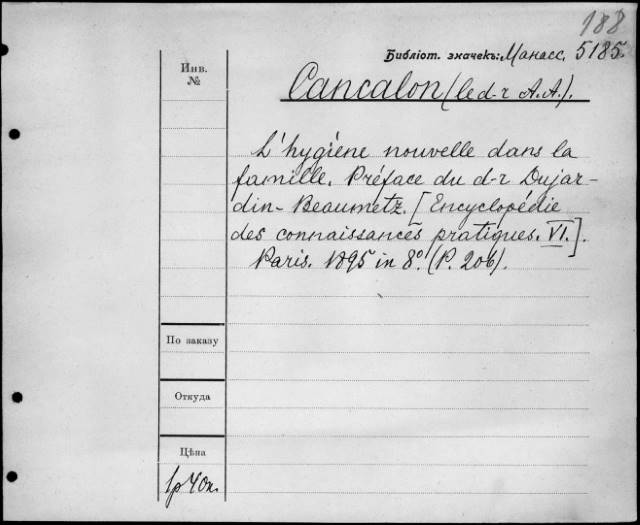 188
Библіот. значекъ: Манасс. 5185.
Инв.
№
Cancalon (le d-r A.A.).
L'hygiène nouvelle dans la
famille. Préface du d-r Dujar-
din-Beaumetz. [Encyclopédie
des connaissances pratiques. VI.].
Paris. 1895 in 8º. (P. 206).
По заказу
Откуда
Цѣна
1р 40к.